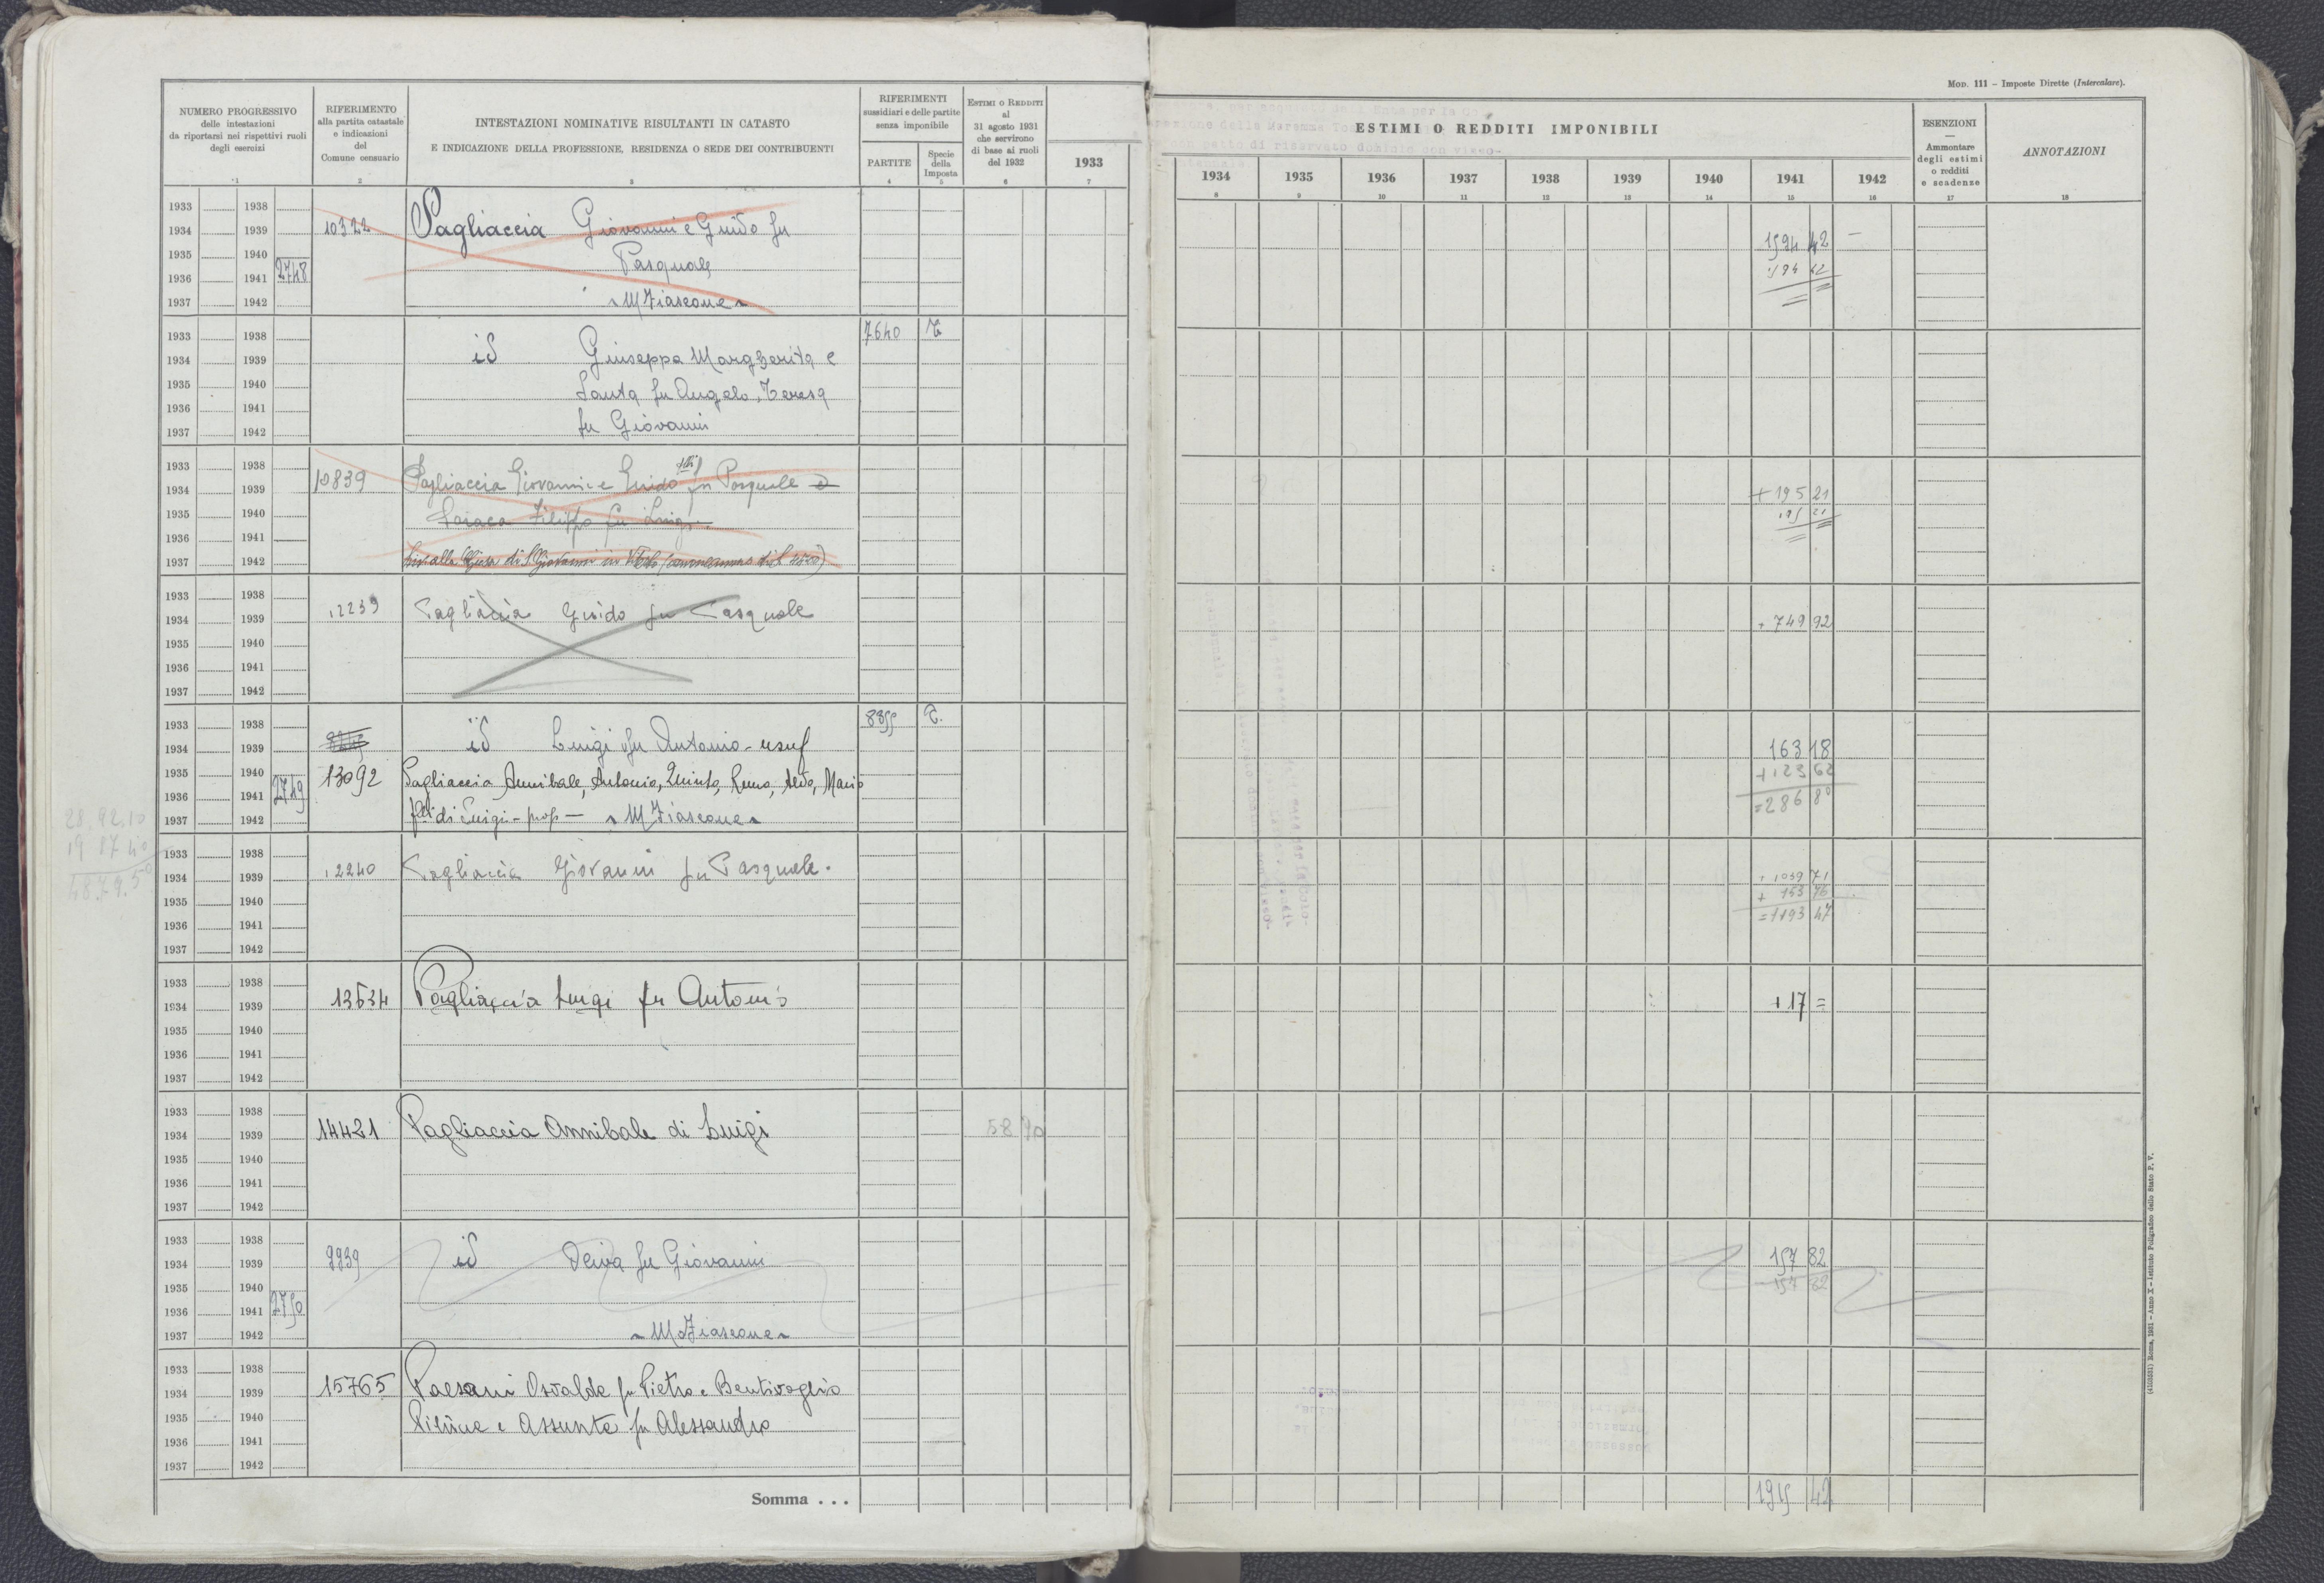 MOD. 111 – Imposte Dirette (Intercalare).
NUMERO PROGRESSIVO
delle intestazioni
da riportarsi nei rispettivi ruoli
degli esercizi
1
RIFERIMENTO
alla partita catastale
e indicazioni
del
Comune censuario
2
INTESTAZIONI NOMINATIVE RISULTANTI IN CATASTO
E INDICAZIONE DELLA PROFESSIONE, RESIDENZA O SEDE DEI CONTRIBUENTI
3
RIFERIMENTI
sussidiari e delle partite
senza imponibile
PARTITE
4
Specie
della
Imposta
5
ESTIMI O REDDITI
al
31 agosto 1931
che servirono
di base ai ruoli
del 1932
6
ESTIMI O REDDITI IMPONIBILI
1933
7
1934
8
1935
9
1936
10
1937
11
1938
12
1939
13
1940
14
1941
15
1942
16
ESENZIONI
—
Ammontare
degli estimi
o redditi
e scadenze
17
ANNOTAZIONI
18
1933 1938
1934 1939 10322 Pagliaccia Giovanni e Guido fu 1594 42 –
1935 1940 Pasquale
1936 1941 2748
1937 1942 M Fiascone
1933 1938 7640 T
1934 1939 id Giuseppa Margherita e
1935 1940 Santa fu Angelo, Teresa
1936 1941
1937 1942 fu Giovanni
1933 1938
1934 1939 10839 Pagliaccia Giovanni e Guido flli fu Pasquale e + 195 21
1935 1940 Filippo fu Luigi 195 21
1936 1941
1937 1942 alla Chiesa di S. Giovanni in
1933 1938
1934 1939 12239 Pagliaccia Guido fu Pasquale + 749 92
1935 1940
1936 1941
1937 1942
1933 1938 8355 T.
1934 1939 id Luigi fu Antonio - usuf 163 18
1935 1940 13092 Pagliaccia Annibale, Antonio, Quinto, Remo, Aldo, Mario + 123 62
1936 1941 2749 = 286 80
1937 1942 flli di Luigi - prop – M Fiascone
28.92.10
19 87 40
48.79.50
1933 1938
1934 1939 12240 Pagliaccia Giovanni fu Pasquale. + 1039 71
1935 1940 + 153 76
1936 1941 = 1193 47
1937 1942
1933 1938
1934 1939 13634 Pagliaccia Luigi fu Antonio + 17 =
1935 1940
1936 1941
1937 1942
1933 1938
1934 1939 14421 Pagliaccia Annibale di Luigi 58 70
1935 1940
1936 1941
1937 1942
1933 1938
1934 1939 9939 id Deiva fu Giovanni 157 82
1935 1940 157 82
1936 1941 2750
1937 1942 M Fiascone
1933 1938
1934 1939 15765 Paesani Osvalde fu Pietro e Bentivoglio
1935 1940 e Assunta fu Alessandro
1936 1941
1937 1942
Somma . . . 1915 42
(4103231) Roma, 1931 – Anno X – Istituto Poligrafico dello Stato P. V.